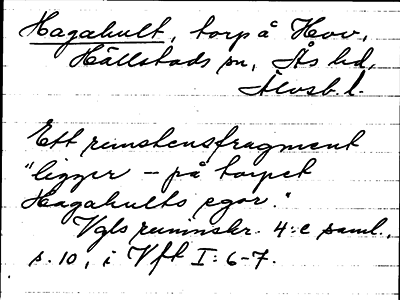 Hagahult, torp å Hov,
Hällstads sn, Ås hd,
Älvsb. l.
Ett runstensfragment
"ligger – på torpet
Hagahults egor."
Vgls runinskr. 4:e saml.,
s. 10, i Vft I: 6-7.